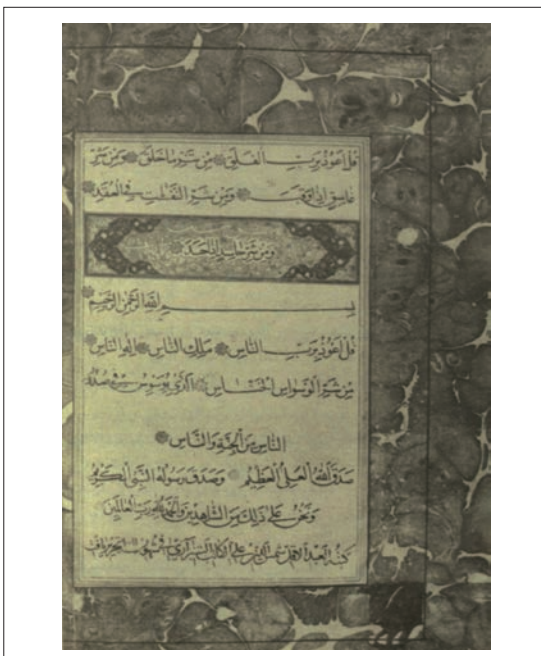 قُلْ أَعُوذُ بِرَبِّ الْفَلَقِ مِنْ شَرِّ مَا خَلَقَ وَمِنْ شَرِّ
غَاسِقٍ إِذَا وَقَبَ وَمِنْ شَرِّ النَّفَّٰثٰتِ فِي الْعُقَدِ
وَمِنْ شَرِّ حَاسِدٍ إِذَا حَسَدَ
بِسْمِ اللّٰهِ الرَّحْمٰنِ الرَّحِيْمِ
قُلْ أَعُوذُ بِرَبِّ النَّاسِ مَلِكِ النَّاسِ إِلٰهِ النَّاسِ
مِنْ شَرِّ الْوَسْوَاسِ الْخَنَّاسِ الَّذِي يُوَسْوِسُ فِي صُدُورِ
النَّاسِ مِنَ الْجِنَّةِ وَالنَّاسِ
صَدَقَ اللّٰهُ الْعَلِيُّ الْعَظِيْمُ وَصَدَقَ رَسُولُهُ النَّبِيُّ الْكَرِيْمُ
وَنَحْنُ عَلٰى ذٰلِكَ مِنَ الشَّاهِدِيْنَ وَالْحَمْدُ لِلّٰهِ رَبِّ الْعَالَمِيْنَ
كتبه العبد الاقل